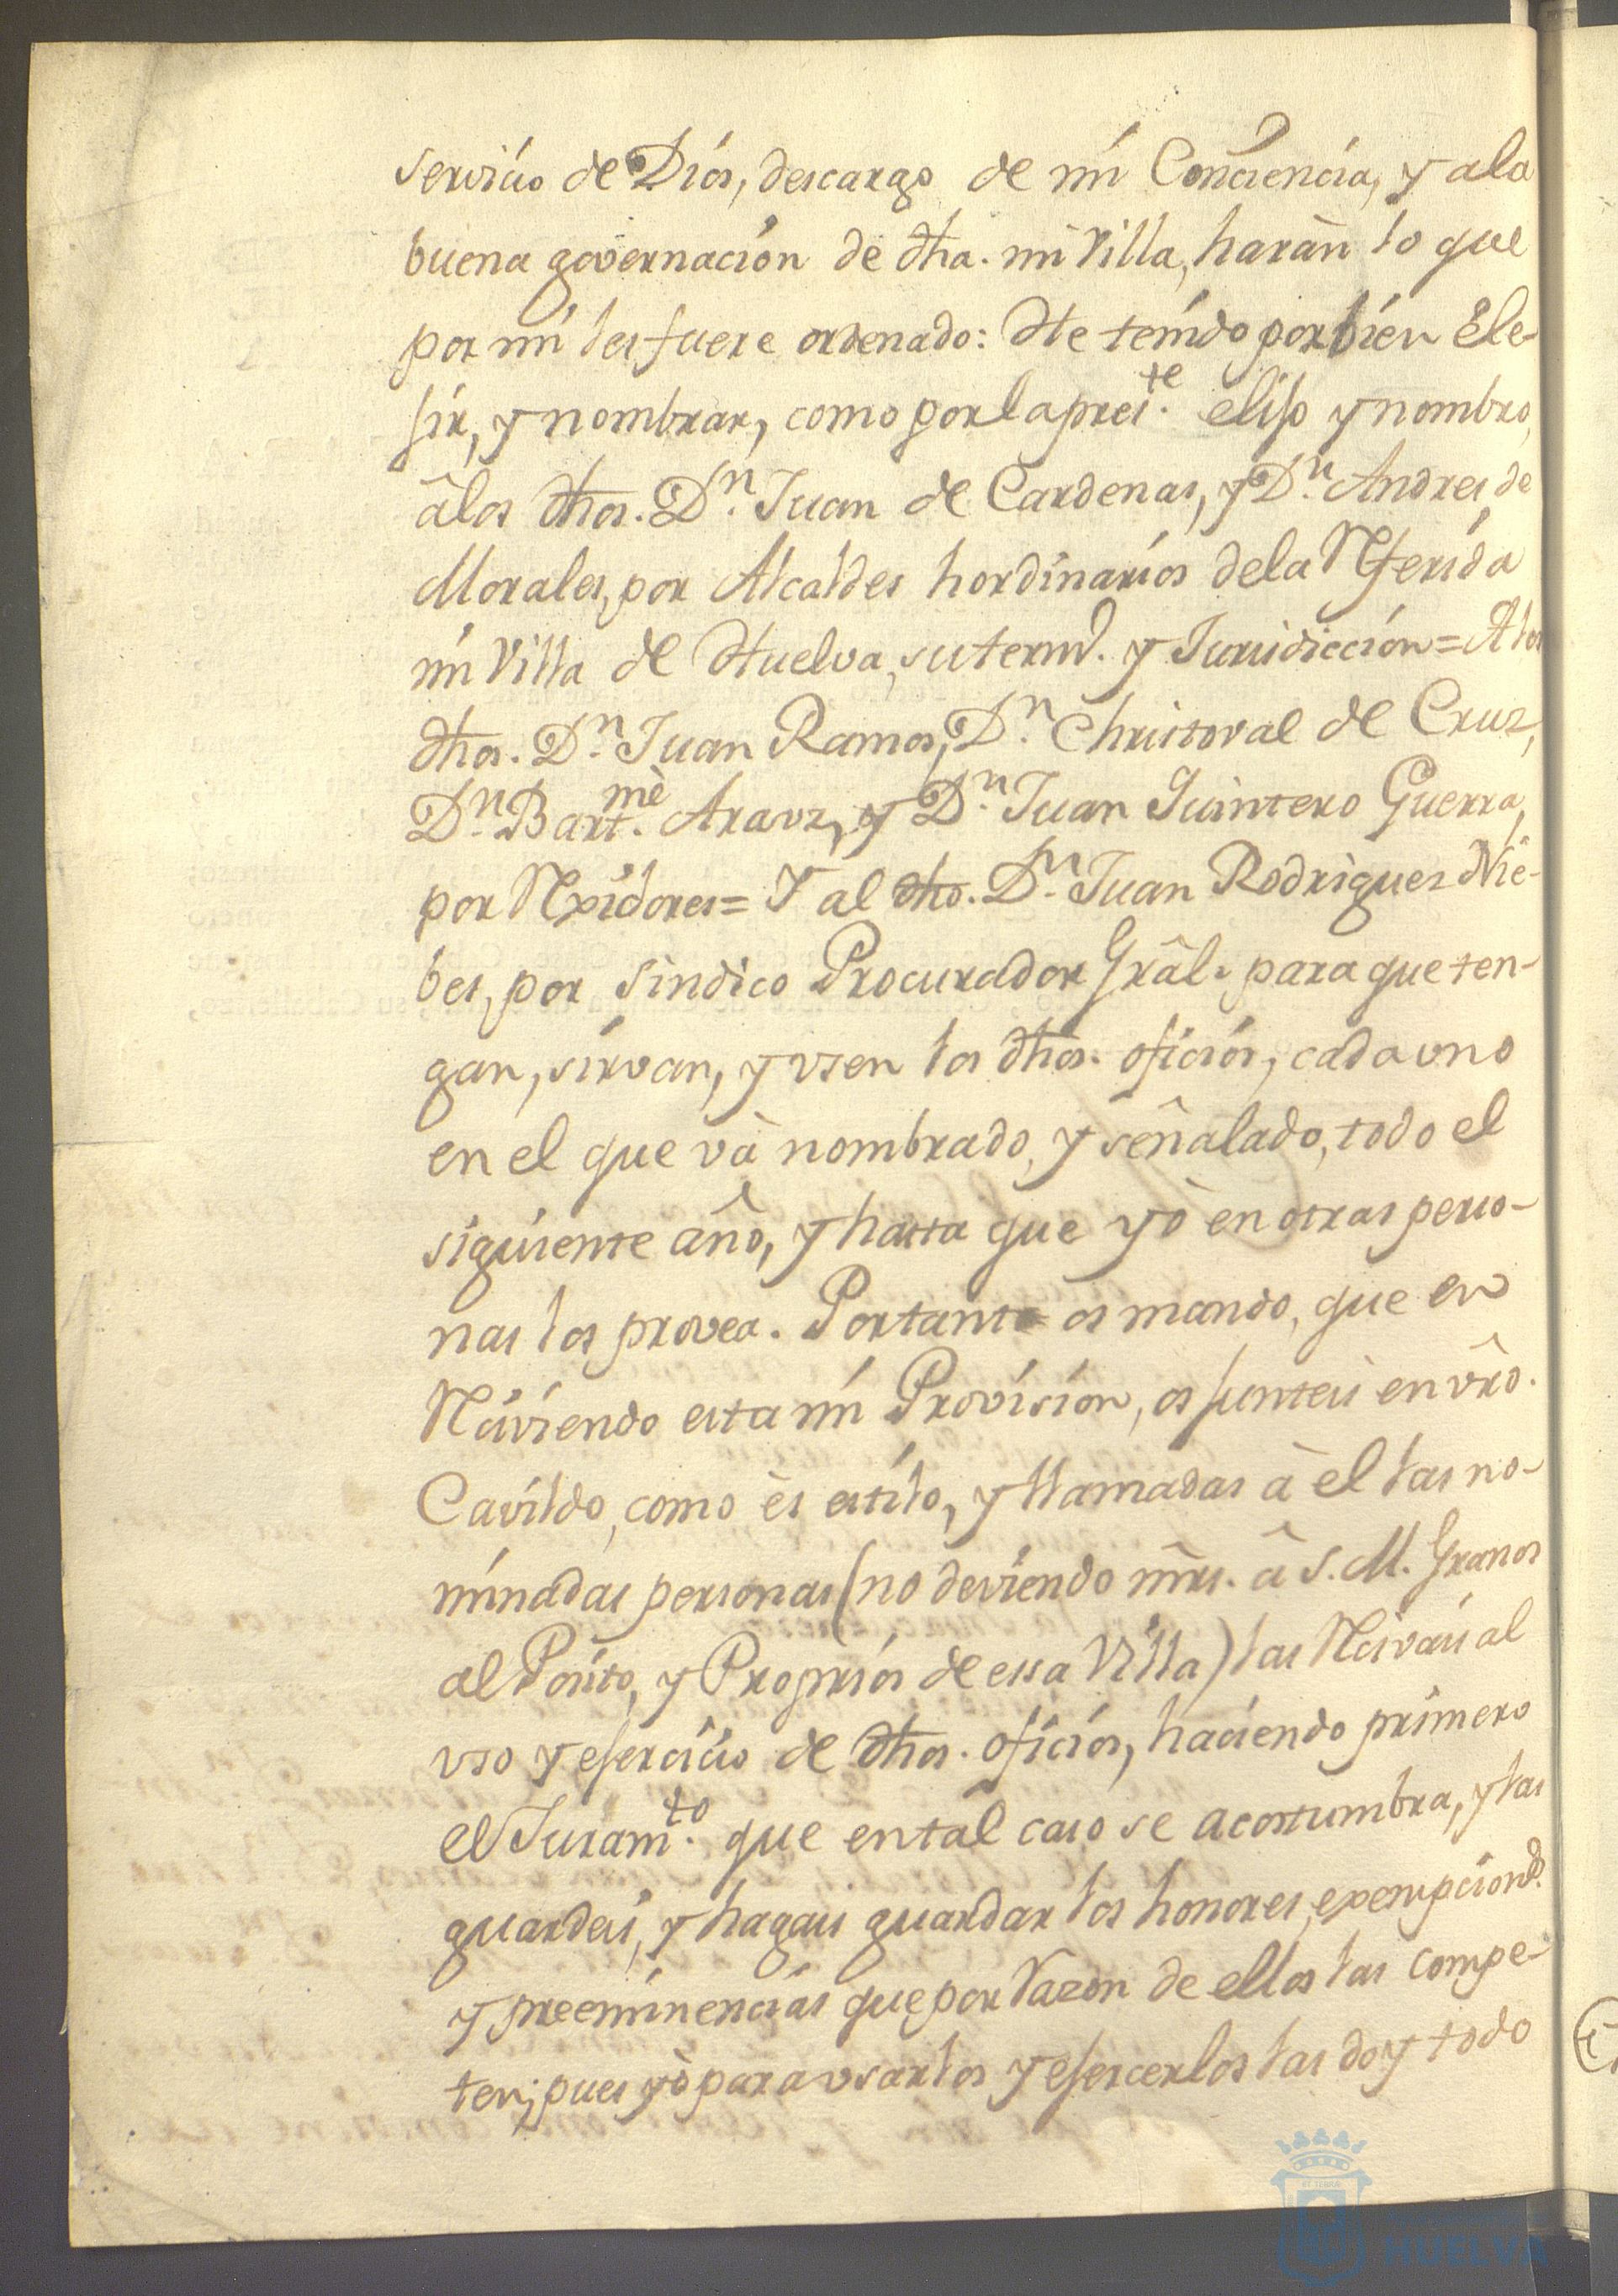 servicio de Dios, descargo de mi Conciencia, y ala
buena governacion de dha. mi Villa, haràn lo que
por mi les fuere ordenado: He tenido por bien Ele-
jir, y nombrar, como por la pres.te elijo y nombro,
âlos dhos. D.n Juan de Cardenas, y D.n Andres de
Morales, por Alcaldes hordinarios dela Referida
mi Villa de Huelva, su term.o y Jurisdiccion = A los
dhos. D.n Juan Ramos, D.n Christoval de Cruz,
D.n Bart.mè Arauz, y D.n Juan Quintero Guerra,
por Rexidores = Y al dho. D.n Juan Rodriguez Nie-
bes, por Sindico Procurador Grâl. para que ten-
gan, sirvan, y vsen los dhos. oficios, cada uno
en el que và nombrado, y señalado, todo el
siguiente año, y hasta que yò en otras perso-
nas los provea. Portanto os mando, que en
Reciviendo esta mi Provision, os junteis en vrô.
Cavildo, como ès estilo, y llamadas à èl las no-
minadas personas (no deviendo mrs. â S. M. Granos
al Posito, y Proprios de essa Villa) las Recivais al
vso y exercicio de dhos. oficios, haciendo primero
el Juram.to que en tal caso se acostumbra, y las
guardeis, y hagais guardar los honores, exempcion.s
y preeminencias que por Razon de ellos las compe-
ten; pues yò para vsarlos y ejercerlos las doy todo
HUELVA